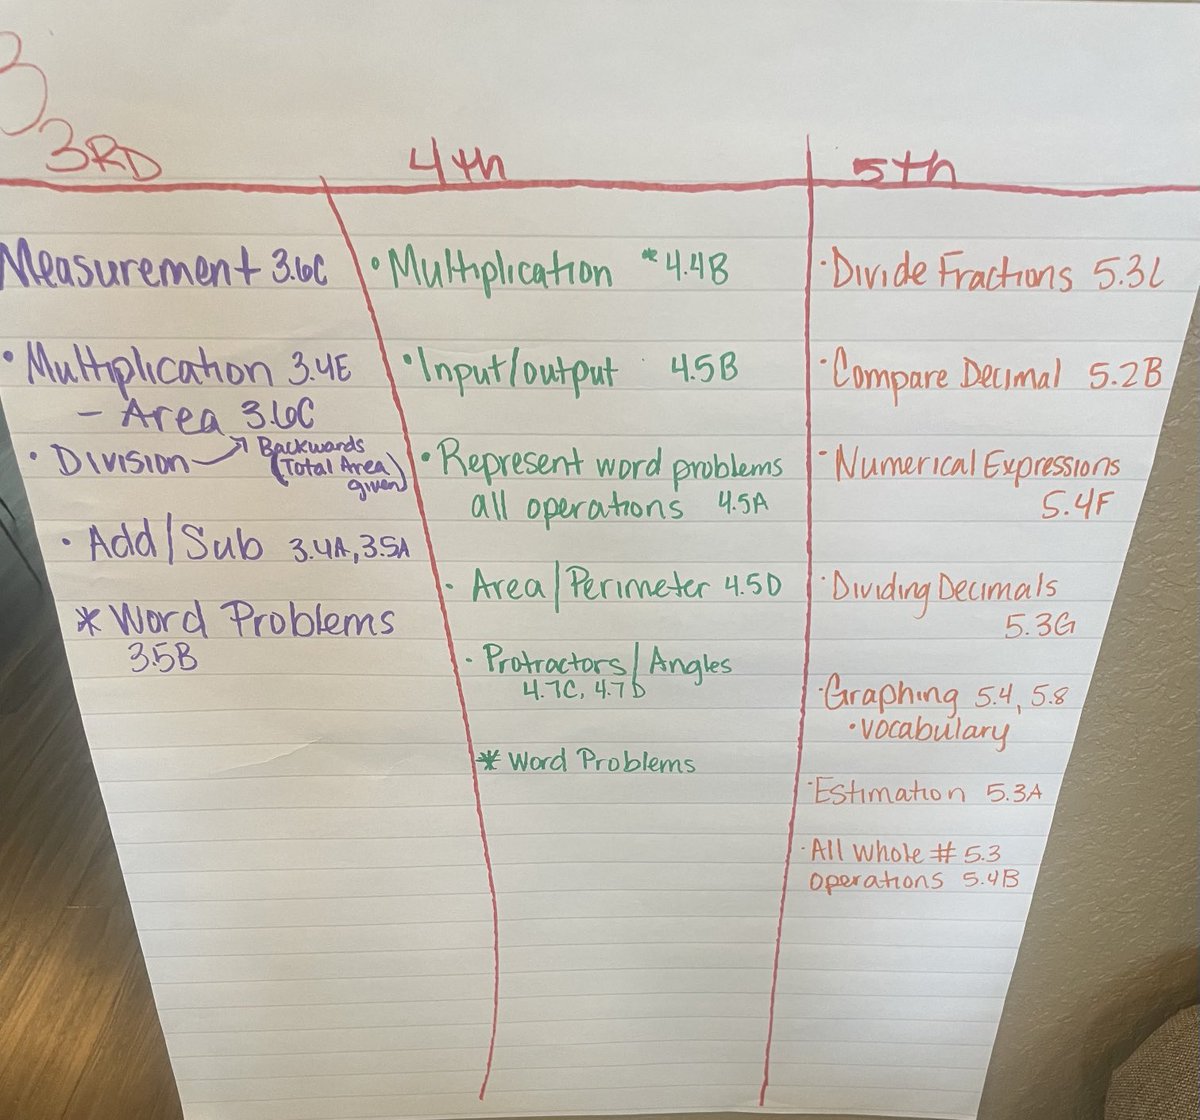 3
3RD
Measurement 3.6C
• Multiplication 3.4E
- Area 3.6C
• Division → Backwards
(Total Area
given)
• Add/Sub 3.4A, 3.5A
* Word Problems
3.5B
4th
• Multiplication *4.4B
• Input/output 4.5B
• Represent word problems
all operations 4.5A
• Area/Perimeter 4.5D
• Protractors/Angles
4.7C, 4.7D
* Word Problems
5th
• Divide Fractions 5.3L
• Compare Decimal 5.2B
• Numerical Expressions
5.4F
• Dividing Decimals
5.3G
• Graphing 5.4, 5.8
• vocabulary
• Estimation 5.3A
• All whole # 5.3
operations 5.4B